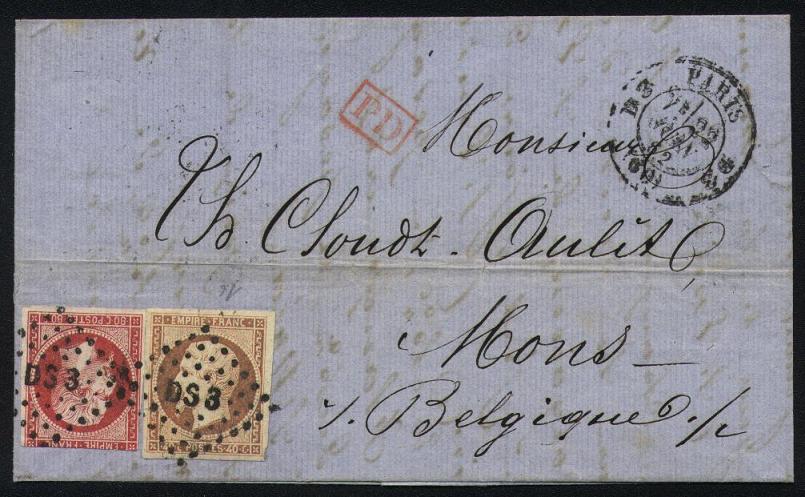 PD
PARIS
Monsieur
Th. Cloudt-Aulit
Mons
Belgique
80 C POSTES 80
EMPIRE FRANC
DS3
EMPIRE FRANC
DS3
40 C